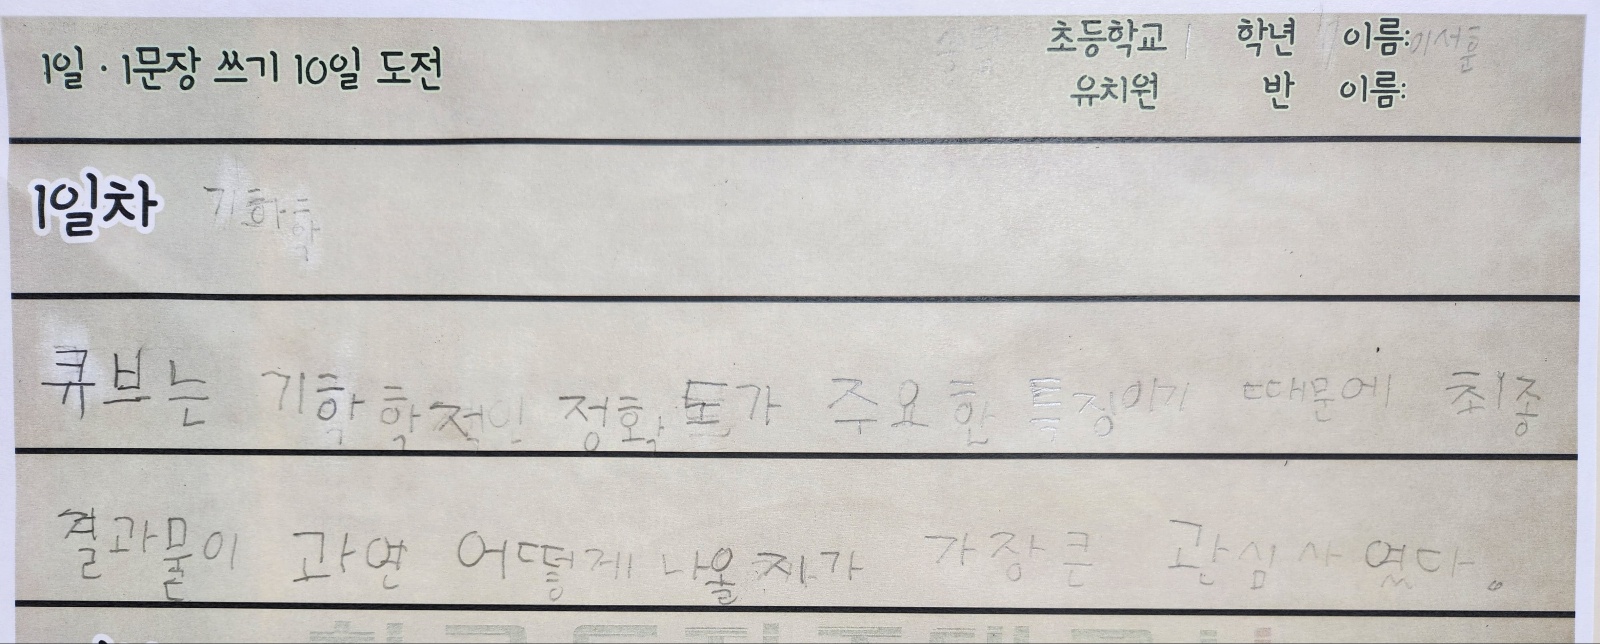 1일·1문장 쓰기 10일 도전
초등학교 1 학년 이름: 이서훈
유치원 반 이름:
1일차 기하학
큐브는 기하학학적인 정확도가 주요한 특징이기 때문에 최종
결과물이 과연 어떻게 나올지가 가장 큰 관심사였다.